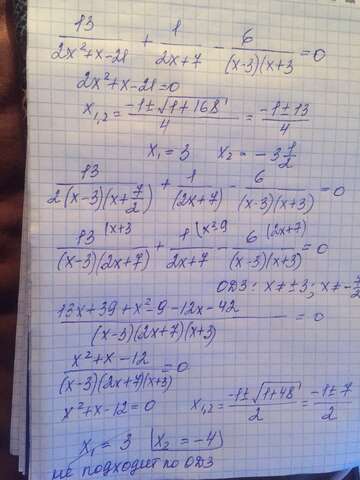 13/(2x²+x-21) + 1/(2x+7) - 6/((x-3)(x+3) = 0
2x²+x-21=0
x₁,₂ = (-1±√(1+168))/4 = (-1±13)/4
x₁ = 3 x₂ = -3 1/2
13/(2(x-3)(x+7/2)) + 1/(2x+7) - 6/((x-3)(x+3)) = 0
13 |x+3/((x-3)(2x+7)) + 1 |x²-9/(2x+7) - 6 |(2x+7)/((x-3)(x+3)) = 0
ОДЗ: x≠±3; x≠-7/2
(13x+39+x²-9-12x-42)/((x-3)(2x+7)(x+3)) = 0
(x²+x-12)/((x-3)(2x+7)(x+3)) = 0
x²+x-12=0 x₁,₂ = (-1±√(1+48))/2 = (-1±7)/2
x₁ = 3 x₂ = -4
не подходит по ОДЗ